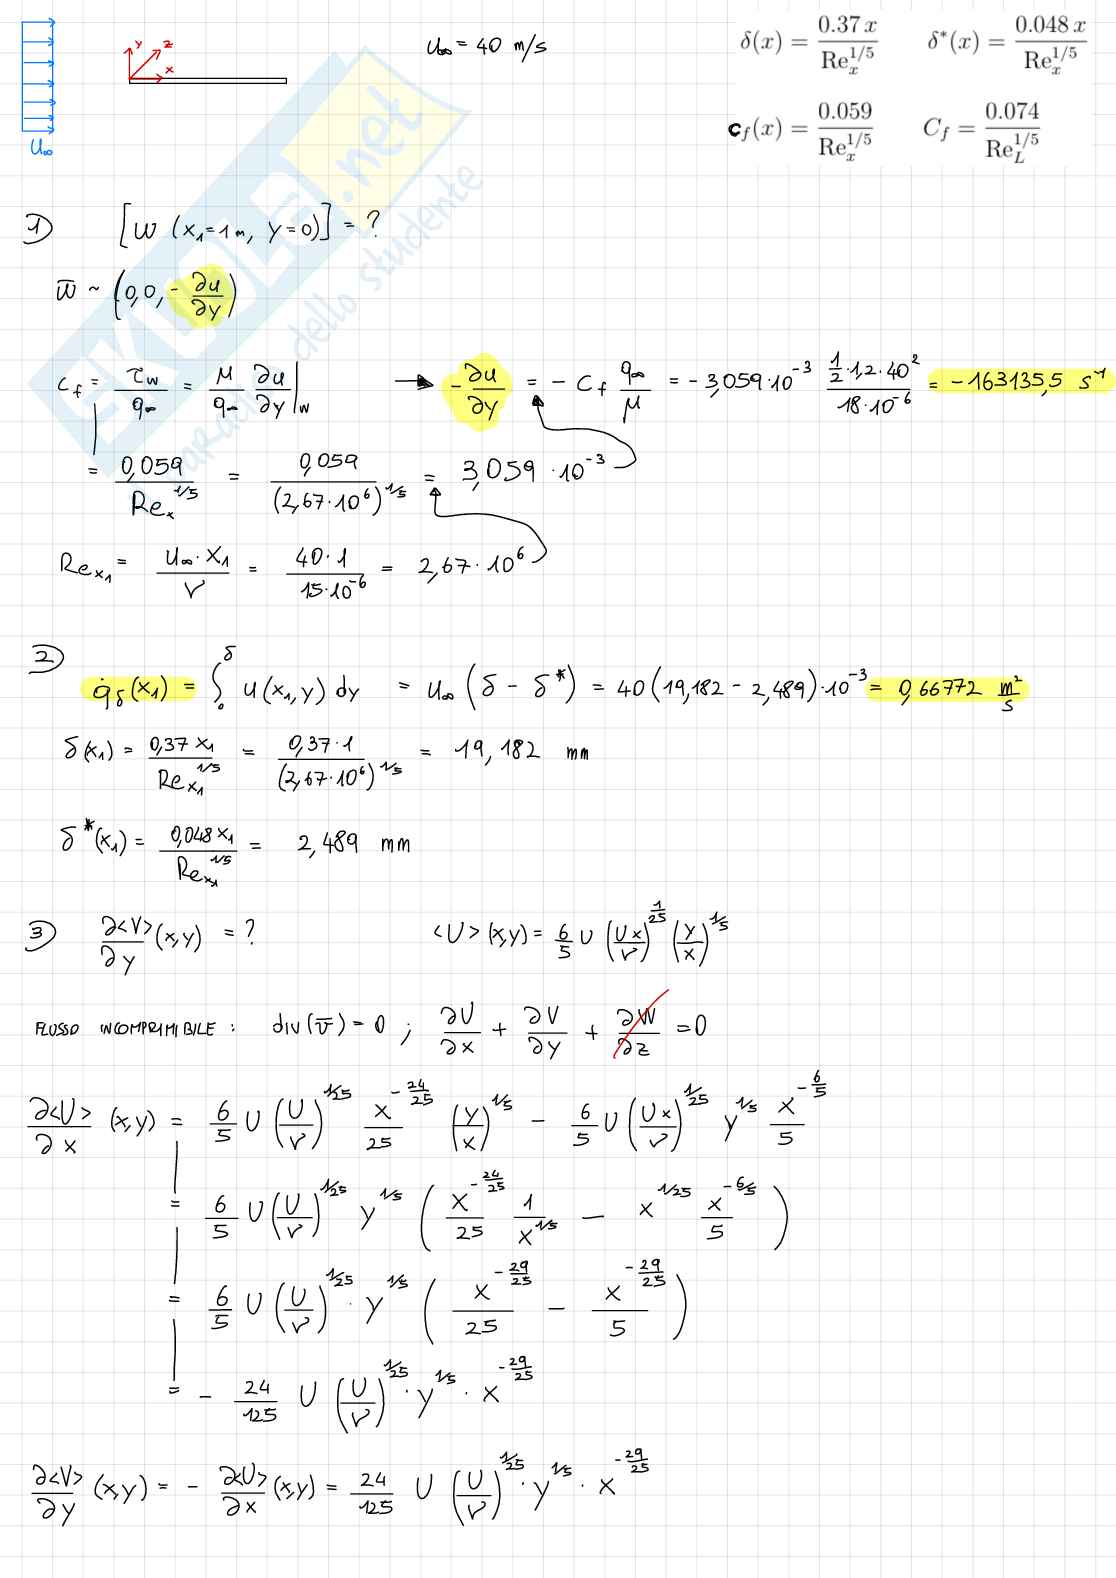 U∞
y z x
U∞ = 40 m/s
δ(x) = 0.37 x / Re_x^{1/5}    δ*(x) = 0.048 x / Re_x^{1/5}
c_f(x) = 0.059 / Re_x^{1/5}    C_f = 0.074 / Re_L^{1/5}
SKUOLA.net
paradiso dello studente
1) [W (x₁=1m, y=0)] = ?
w̄ ~ (0,0, -∂u/∂y)
c_f = τ_w/q∞ = μ/q∞ ∂u/∂y|_w → -∂u/∂y = - c_f q∞/μ = -3,059·10^{-3} (1/2·1,2·40²)/(18·10^{-6}) = -163135,5 s^{-1}
= 0,059/Re_x^{1/5} = 0,059/(2,67·10⁶)^{1/5} = 3,059 ·10^{-3}
Re_{x₁} = U∞·x₁/ν = 40·1/(15·10^{-6}) = 2,67·10⁶
2) q̇_δ(x₁) = ∫₀^δ u(x₁,y) dy = U∞ (δ - δ*) = 40 (19,182 - 2,489)·10^{-3} = 0,66772 m²/s
δ(x₁) = 0,37 x₁/Re_{x₁}^{1/5} = 0,37·1/(2,67·10⁶)^{1/5} = 19,182 mm
δ*(x₁) = 0,048 x₁/Re_{x₁}^{1/5} = 2,489 mm
3) ∂<V>/∂y (x,y) = ?    <U>(x,y) = 6/5 U (Ux/ν)^{1/25} (y/x)^{1/5}
FLUSSO INCOMPRIMIBILE : div(v̄) = 0 ; ∂U/∂x + ∂V/∂y + ∂W/∂z = 0
∂<U>/∂x (x,y) = 6/5 U (U/ν)^{1/25} x^{-24/25}/25 (y/x)^{1/5} - 6/5 U (Ux/ν)^{1/25} y^{1/5} x^{-6/5}/5
= 6/5 U (U/ν)^{1/25} y^{1/5} ( x^{-24/25}/25 1/x^{1/5} - x^{1/25} x^{-6/5}/5 )
= 6/5 U (U/ν)^{1/25} · y^{1/5} ( x^{-29/25}/25 - x^{-29/25}/5 )
= - 24/125 U (U/ν)^{1/25} · y^{1/5} · x^{-29/25}
∂<V>/∂y (x,y) = - ∂<U>/∂x (x,y) = 24/125 U (U/ν)^{1/25} · y^{1/5} · x^{-29/25}